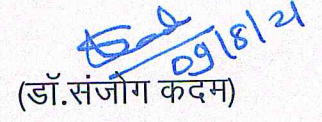 09/8/21
(डॉ.संजोग कदम)